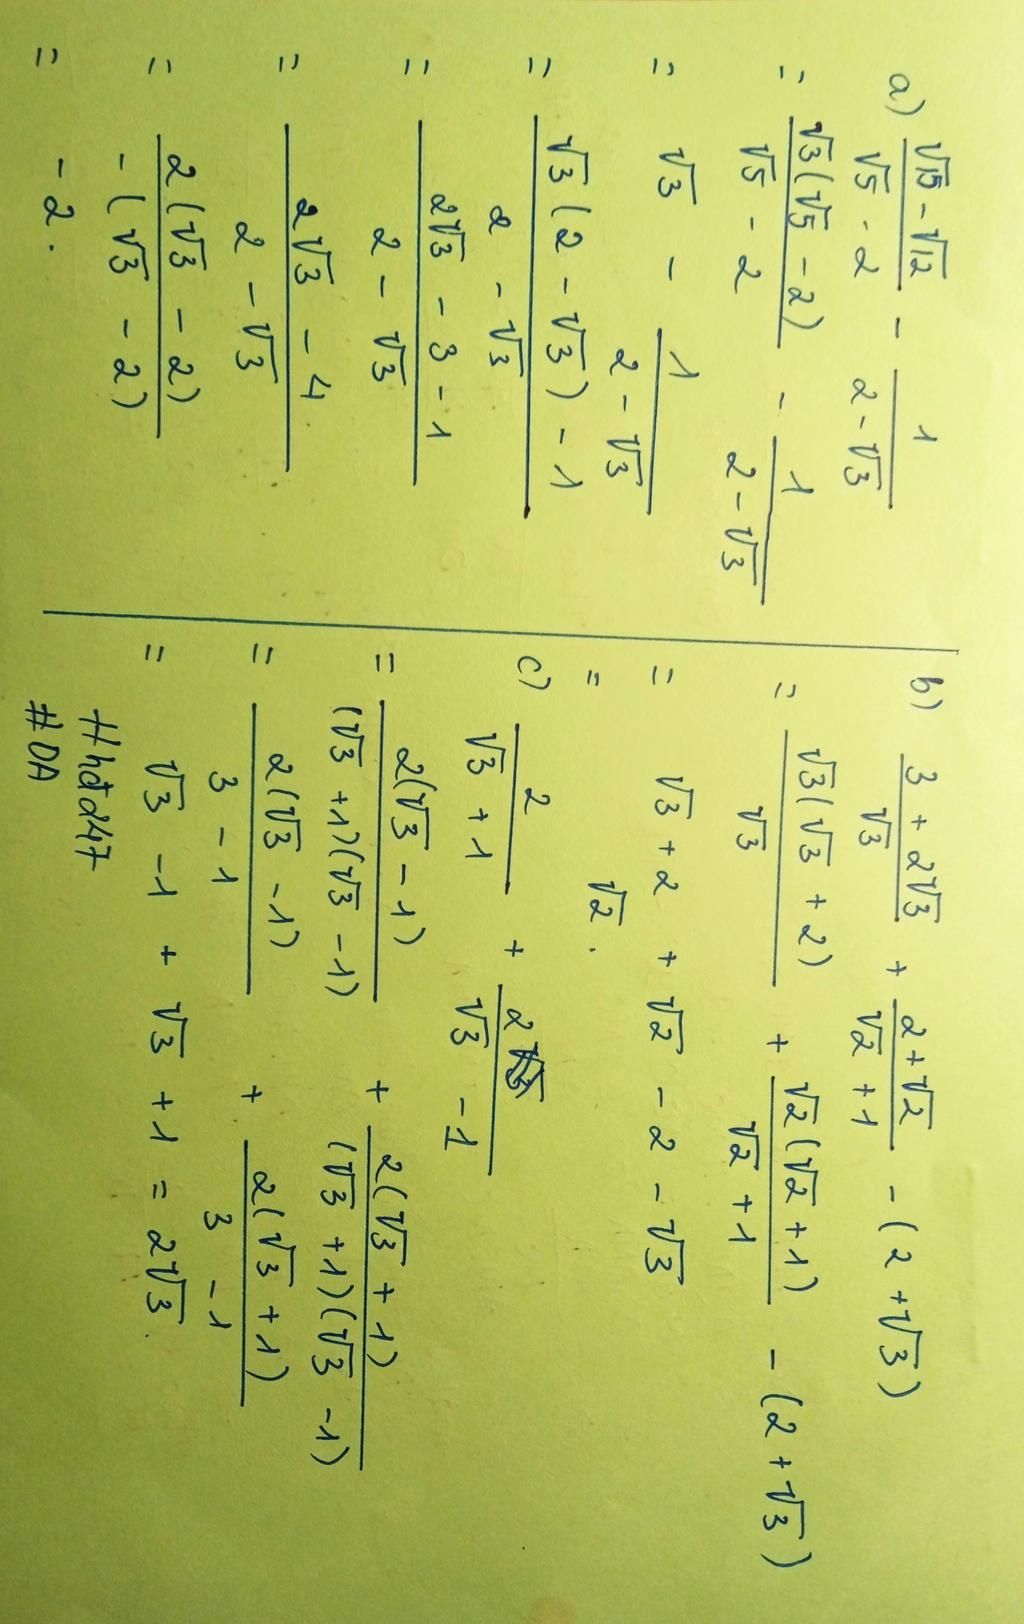 a) (√15 - √12)/(√5 - 2) - 1/(2 - √3)
= √3(√5 - 2)/(√5 - 2) - 1/(2 - √3)
= √3 - 1/(2 - √3)
= (√3(2 - √3) - 1)/(2 - √3)
= (2√3 - 3 - 1)/(2 - √3)
= (2√3 - 4)/(2 - √3)
= 2(√3 - 2)/-(√3 - 2)
= -2.
b) (3 + 2√3)/√3 + (2 + √2)/(√2 + 1) - (2 + √3)
= √3(√3 + 2)/√3 + √2(√2 + 1)/(√2 + 1) - (2 + √3)
= √3 + 2 + √2 - 2 - √3
= √2.
c) 2/(√3 + 1) + 2/(√3 - 1)
= 2(√3 - 1)/(√3 + 1)(√3 - 1) + 2(√3 + 1)/(√3 + 1)(√3 - 1)
= 2(√3 - 1)/(3 - 1) + 2(√3 + 1)/(3 - 1)
= √3 - 1 + √3 + 1 = 2√3.
#hđ247
#DA